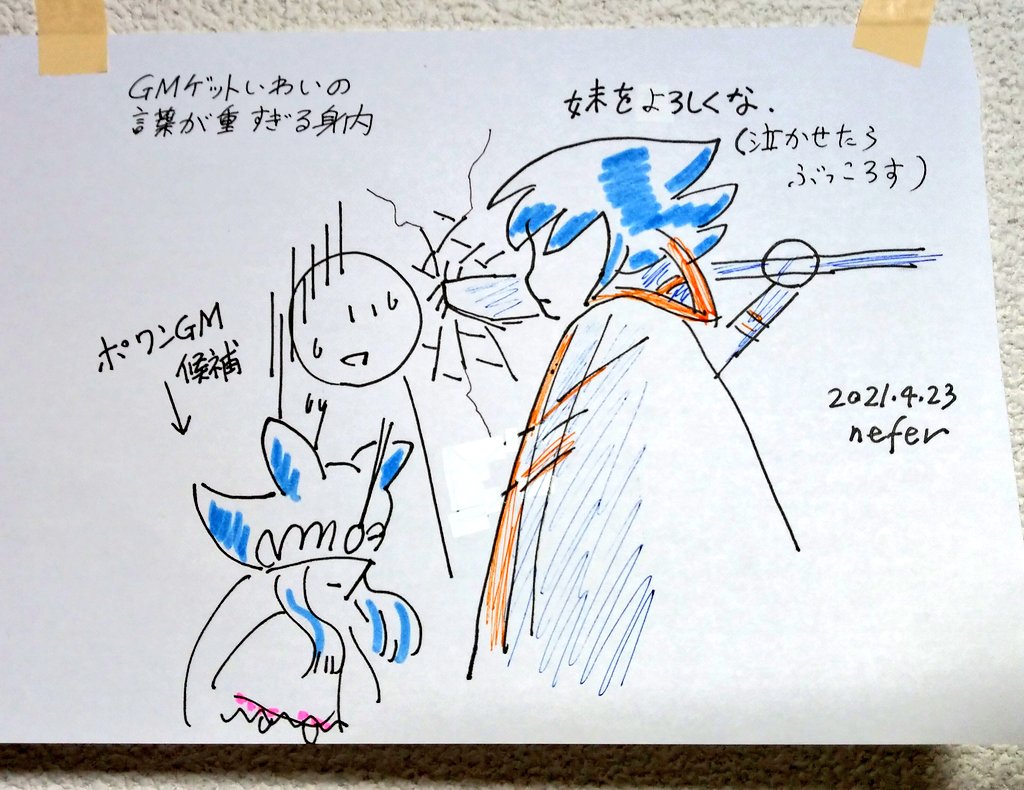 GMゲットいわいの
言葉が重すぎる身内
妹をよろしくな.
(泣かせたら
ぶっころす)
ポワンGM
候補
2021.4.23
nefer